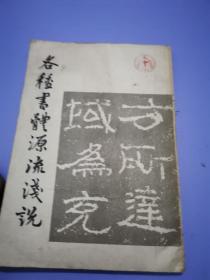 各种書體源流淺説
方所達
域為充